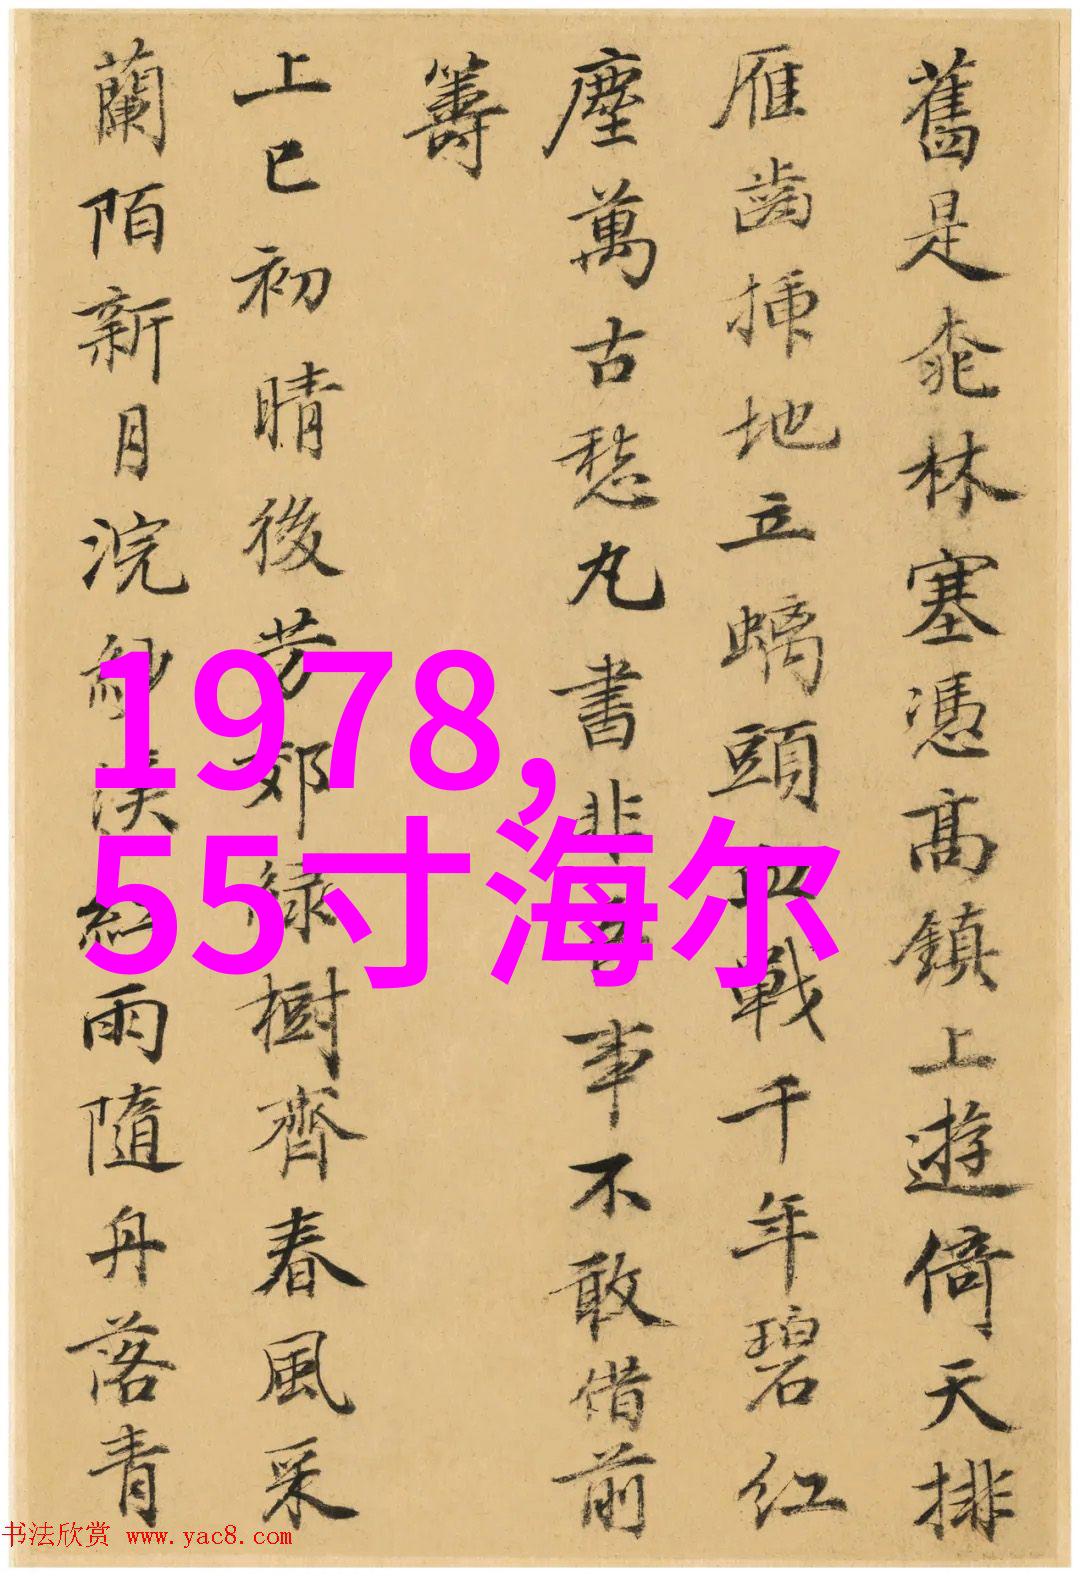 舊是桃林塞憑高鎮上遊倚天排
雁齒插地立螭頭血戰千年碧紅
塵萬古愁丸書非事不敢借前
籌
上巳初晴後芳郊綠樹齊春風采
蘭陌新月浣紗溪紅雨隨丹落青
1978,
55寸海尔
书法欣赏 www.yac8.com